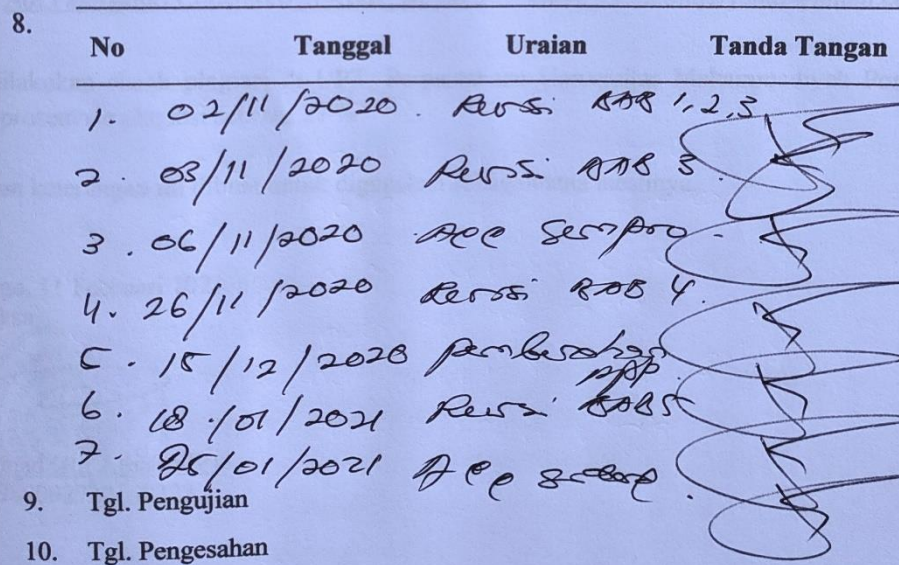 8.
No Tanggal Uraian Tanda Tangan
1. 02/11/2020. Revisi BAB 1,2,3
2. 03/11/2020 Revisi BAB 3.
3. 06/11/2020 Acc Sempro.
4. 26/11/2020 Revisi BAB 4.
5. 15/12/2020
6. 18/01/2021 Revisi BAB 5
7. 25/01/2021 Acc
9. Tgl. Pengujian
10. Tgl. Pengesahan